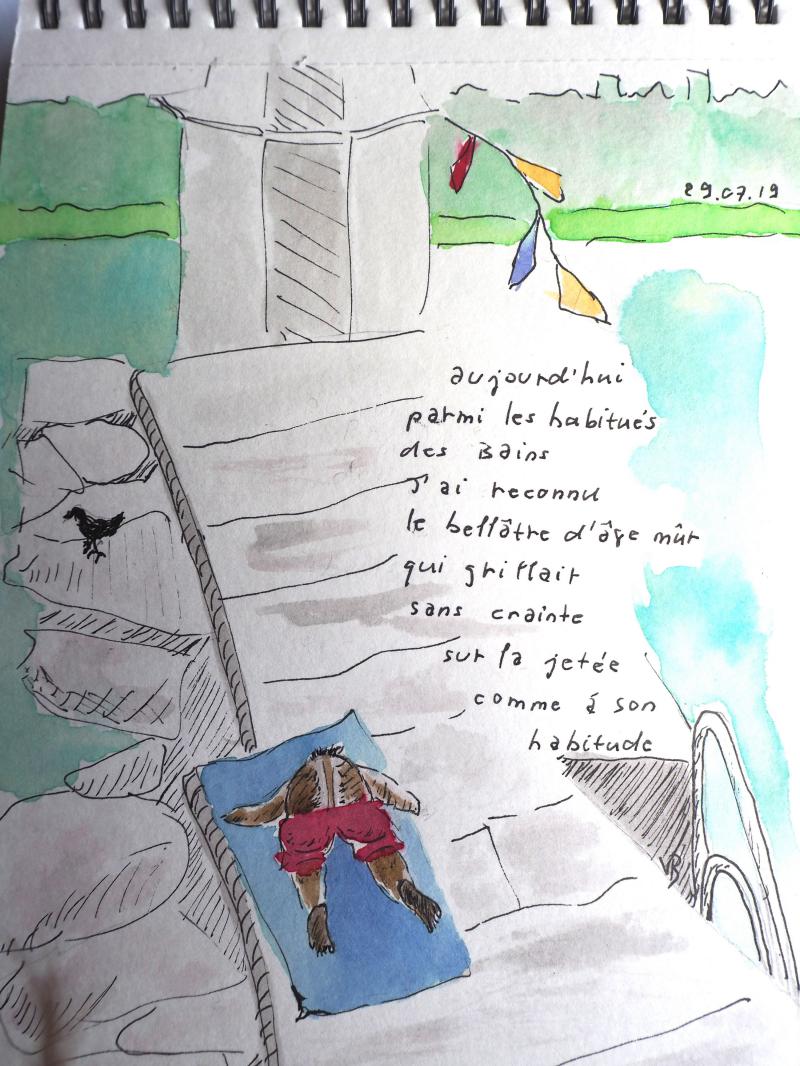 29.07.19
aujourd'hui
parmi les habitués
des Bains
J'ai reconnu
le bellâtre d'âge mûr
qui grillait
sans crainte
sur la jetée
comme à son
habitude